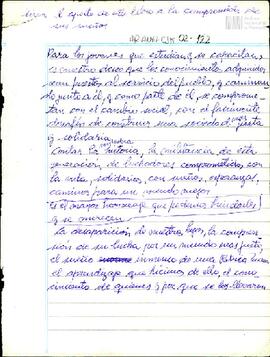 el aporte de este libro a la comprensión de
sus sueños
AR-ANM-CTH 02-122
Para los jóvenes que estudian, y se capacitan,
es nuestro deseo que los conocimientos adquiridos
sean puestos al servicio del pueblo, y caminen
junto a él, y como parte de él, se comprome-
tan con el cambio social, por el
de construir una sociedad justa
y solidaria
Contar la historia, la militancia de esta
generación de luchadores comprometidos con
la vida, solidarios con sueños, esperanzas,
caminos para un mundo mejor.
Es el mayor homenaje que podemos brindarles
y se merecen
La desaparición de nuestros hijos, la compren-
sión de su lucha por un mundo más justo,
el sueño inmenso de una Patria
el aprendizaje que hicimos de ello, el cono-
cimiento de quienes y por que se los llevaron